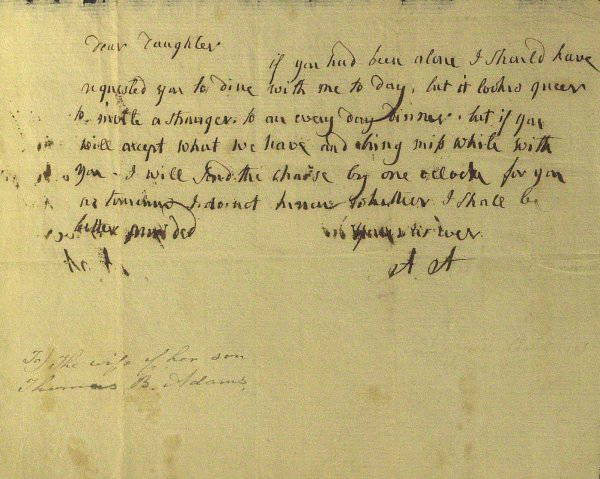 Dear Daughter
if you had been alone I should have
requested you to dine with me to day, but it looks queer
to invite a stranger to an every day Dinner. but if you
will accept what we have and bring miss white with
you - I will send the chaise by one oclock for you
as tomorrow I do not know whether I shall be
better provided
yours as ever
A A
To) the wife of her son
Thomas B. Adams.